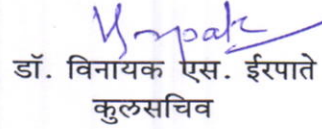 डॉ. विनायक एस. ईरपाते
कुलसचिव